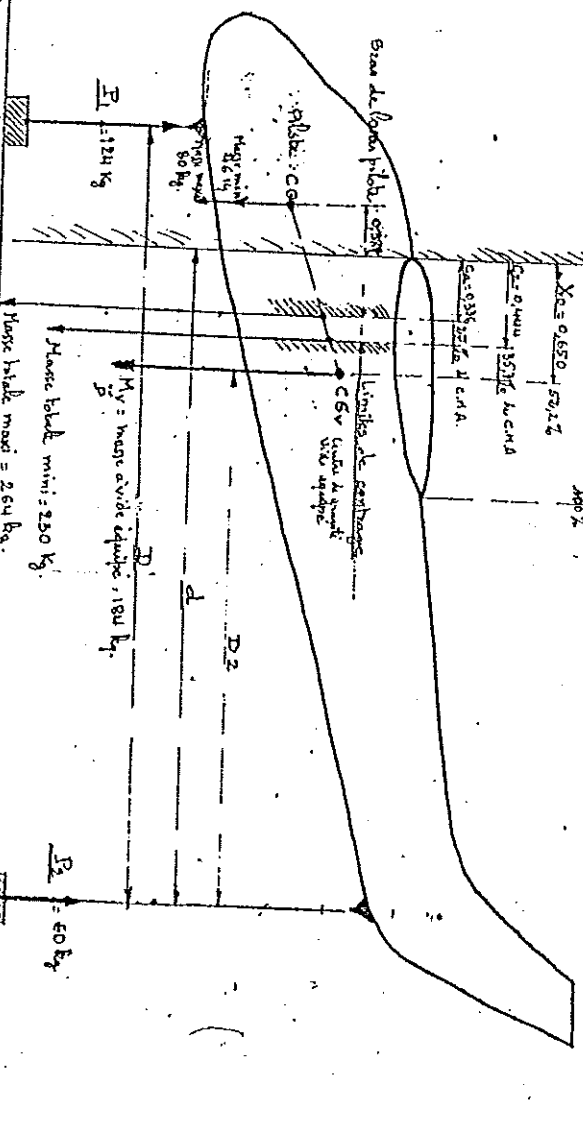 100%
X0 = 0,650 52,2%
C2 = 0,444 35,7% de C.M.A
C1 = 0,336 27% de C.M.A.
Bras de levier pilote :
Limites de centrage
Pilote : CG
CGv Centre de gravité
vide équipé
Masse mini
Masse maxi
80 kg.
P1 = 124 Kg
Mv = masse à vide équipé = 184 kg.
Masse totale mini = 230 Kg.
Masse totale maxi = 264 kg.
D2
d
D'
P2 = 60 kg